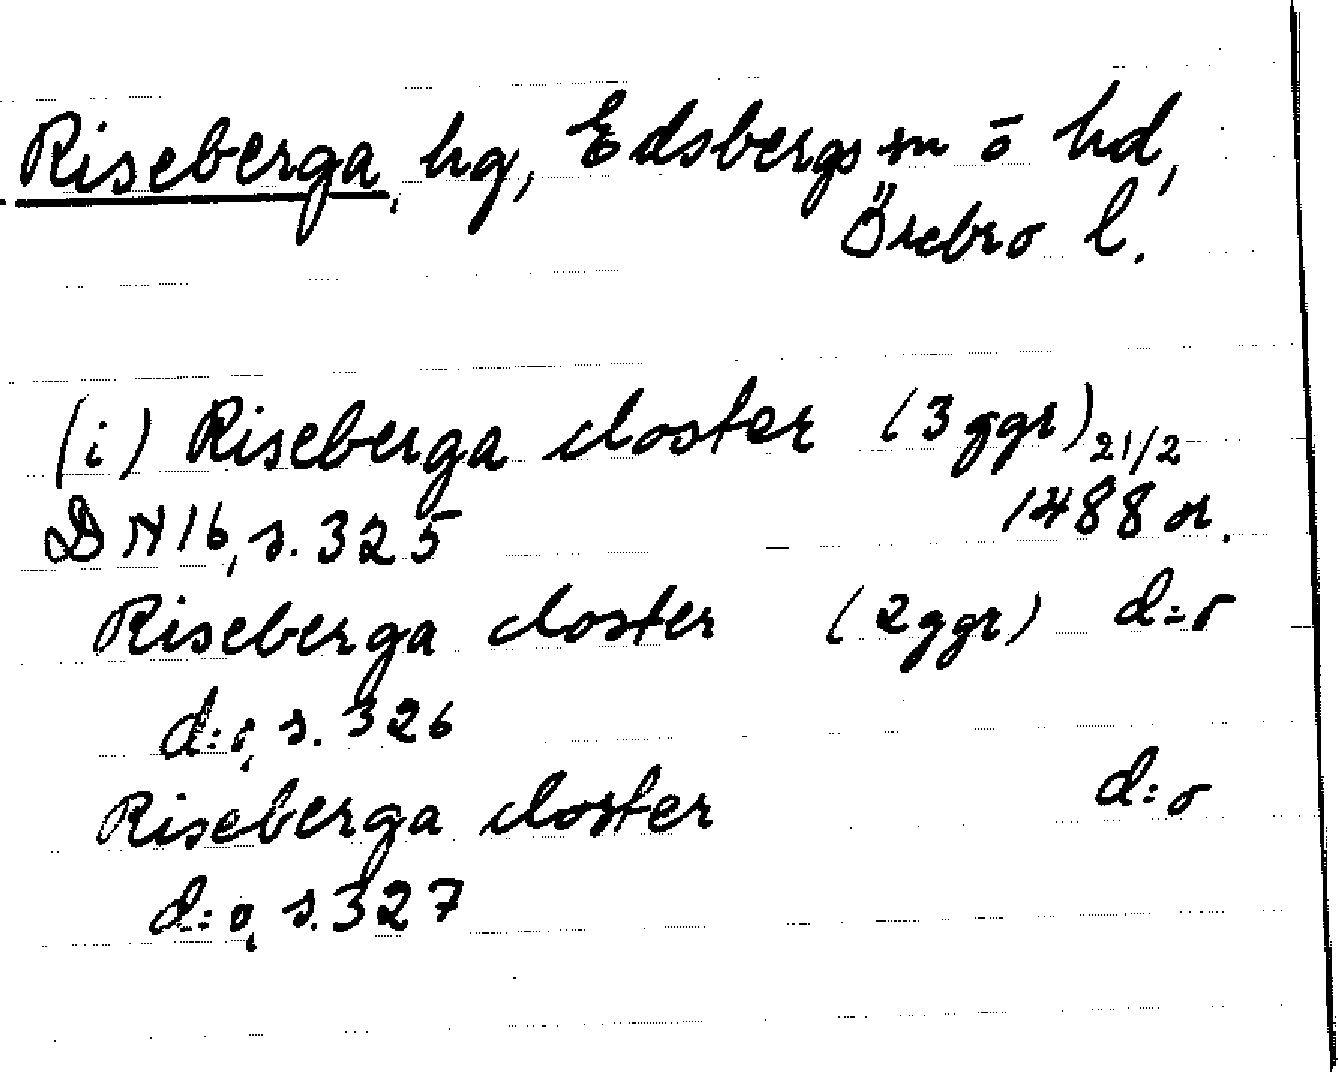 Riseberga, hg, Edsbergs sn o hd,
Örebro l.
(i) Riseberga closter (3 ggr) 21/2
DN 16, s. 325 1488 or.
Riseberga closter (2 ggr) d:o
d:o, s. 326
Riseberga closter d:o
d:o, s. 327